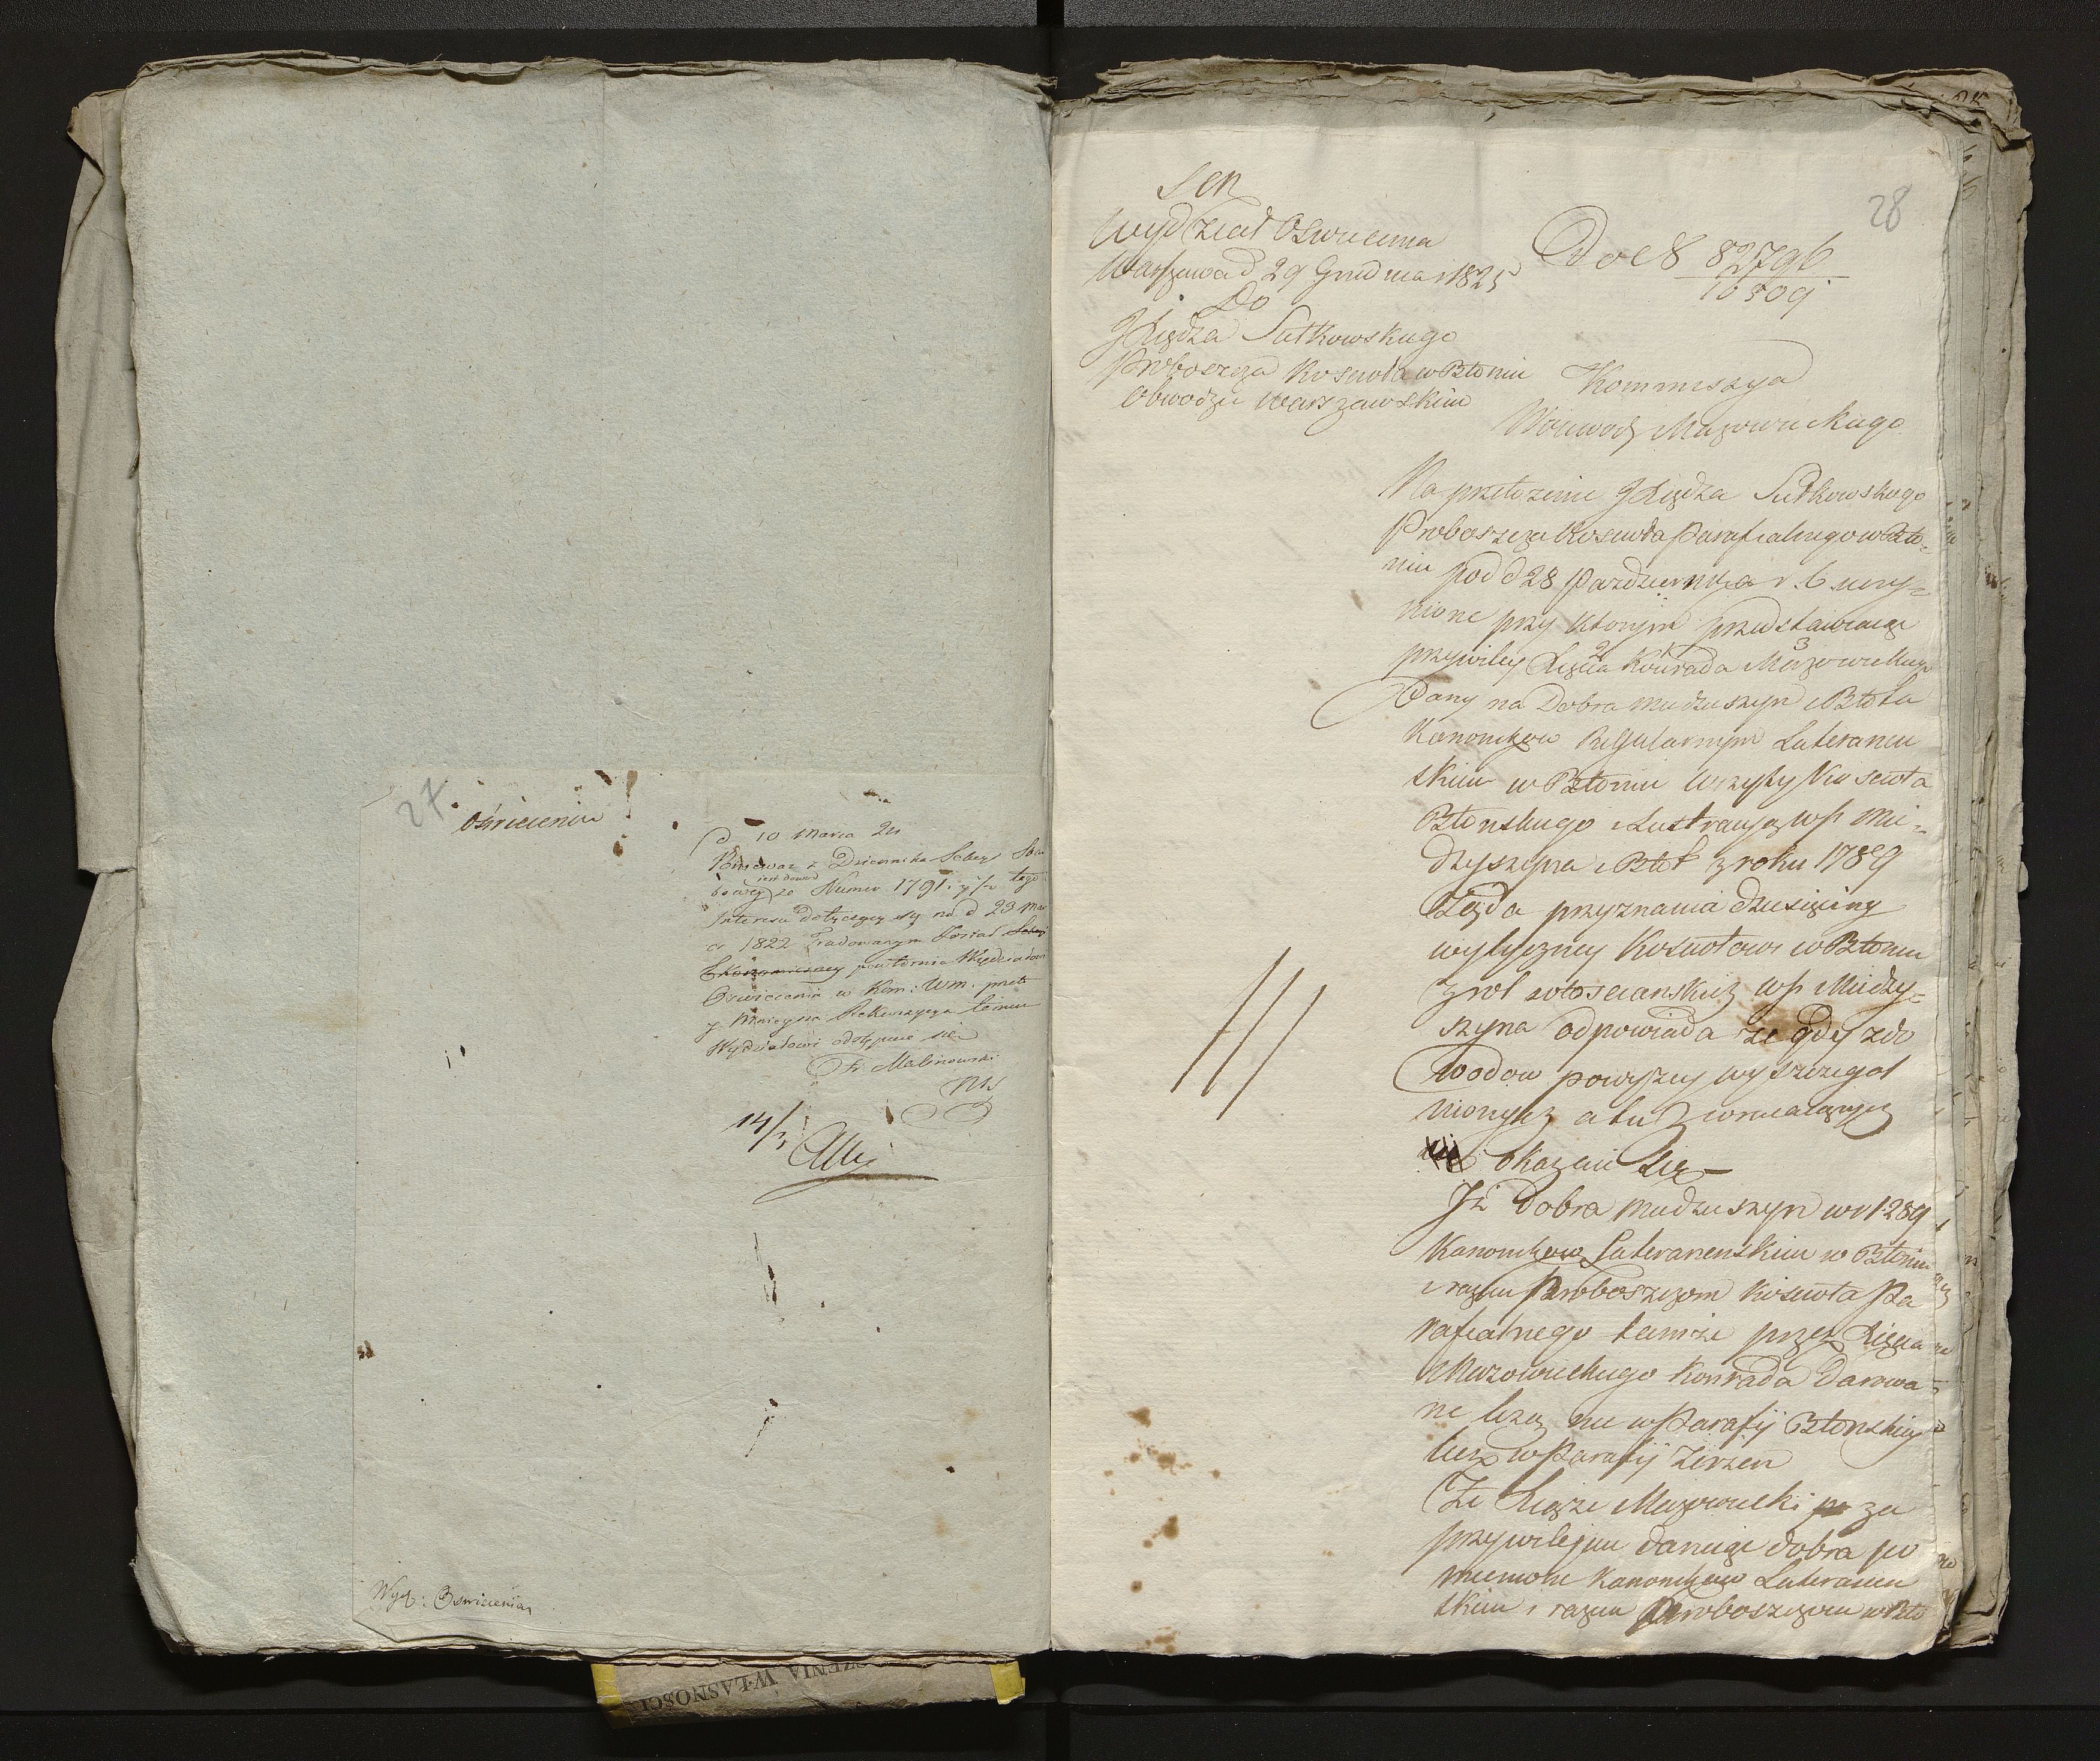 27
Oświecenia
d 10 Marca 24
Ponieważ z Dziennika
jest dowód
że Numer 1791 tego
Interesu dotyczący się na d 23 Mar
ca 1822 został
powtórnie Wydziałowi
Oświecenia w Kom: WM. przeto
y ninieysza temu
Wydziałowi odstępuie się
Fr Malinowski
14/3
Wydz: Oświecenia
WŁASNOŚCI
28
Wydział Oświecenia
Warszawa d 29 Grudnia 1825
Do
JXiędza Sutkowskiego
Proboszcza Kościoła w Błoniu
Obwodzie Warszawskim
Do N 82796
10509
Kommissya
Wojewodz Mazowieckiego
Na przełożenie JXiędza Sutkowskiego
Proboszcza Kościoła Parafialnego w Bło-
niu pod d 28 Października r. b. uczy-
nione przy którym przedstawiając
2 3
przywiley Xięcia Konrada Mazowieckiego
Dany na Dobra Miedzeszyn i Błota
Kanonikom Regularnym Laterane
skim w Błoniu Wizyty Kościoła
Błonskiego i Lustracyą wsi Mie-
dzyszyna i Błot z roku 1789
Żąda przyznania dziesięciny
wytyczney Kościołowi w Błoniu
z ról włosciańskich wsi Miedzy-
szyna odpowiada że gdy z do
wodow powyżey wyszczegól
nionych
nie okazuie się
Iż Dobra Miedzeszyn w r 1289
Kanonikom Lateranenskim w Błoniu
i razem Proboszczom Kościoła Pa
rafialnego tamże przez Xięcia
Mazowieckiego Konrada Darowa-
ne leżą nie w Parafij Błonskiey
lecz w Parafij Zerzen
Że Xiąże Mazowiecki za
przywilejem daruiąc dobra po
mienione Kanonikom Lateranen
skim i razem Proboszczom w Bło